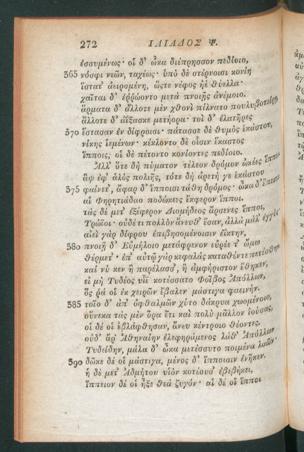 272 ΙΛΙΑΔΟΣ Ψ.
ἐσσυμένως· οἱ δ' ὦκα διέπρησσον πεδίοιο,
365 νόσφι νεῶν, ταχέως· ὑπὸ δὲ στέρνοισι κονίη
ἵστατ' ἀειρομένη, ὥστε νέφος ἠὲ θύελλα·
χαῖται δ' ἐρρώοντο μετὰ πνοιῇς ἀνέμοιο.
ἅρματα δ' ἄλλοτε μὲν χθονὶ πίλνατο πουλυβοτείρῃ,
ἄλλοτε δ' ἀΐξασκε μετήορα· τοὶ δ' ἐλατῆρες
370 ἕστασαν ἐν δίφροισι· πάτασσε δὲ θυμὸς ἑκάστου,
νίκης ἱεμένων· κέκλοντο δὲ οἷσιν ἕκαστος
ἵπποις· οἱ δὲ πέτοντο κονίοντες πεδίοιο.
Ἀλλ' ὅτε δὴ πύματον τέλεον δρόμον ὠκέες ἵπποι
ἂψ ἐφ' ἁλὸς πολιῆς, τότε δὴ ἀρετή γε ἑκάστου
375 φαίνετ', ἄφαρ δ' ἵπποισι τάθη δρόμος· ὦκα δ' ἔπειτα
αἱ Φηρητιάδαο ποδώκεες ἔκφερον ἵπποι.
τὰς δὲ μετ' ἐξέφερον Διομήδεος ἄρσενες ἵπποι,
Τρώϊοι· οὐδέ τι πολλὸν ἄνευθ' ἔσαν, ἀλλὰ μάλ' ἐγγύς·
αἰεὶ γὰρ δίφρου ἐπιβησομένοισιν ἐΐκτην,
380 πνοιῇ δ' Εὐμήλοιο μετάφρενον εὐρέε τ' ὤμω
θέρμετ'· ἐπ' αὐτῷ γὰρ κεφαλὰς καταθέντε πετέσθην.
καί νύ κεν ἢ παρέλασσ', ἢ ἀμφήριστον ἔθηκεν,
εἰ μὴ Τυδέος υἷι κοτέσσατο Φοῖβος Ἀπόλλων,
ὅς ῥά οἱ ἐκ χειρῶν ἔβαλεν μάστιγα φαεινήν.
385 τοῖο δ' ἀπ' ὀφθαλμῶν χύτο δάκρυα χωομένοιο,
οὕνεκα τὰς μὲν ὅρα ἔτι καὶ πολὺ μᾶλλον ἰούσας,
οἱ δέ οἱ ἐβλάφθησαν, ἄνευ κέντροιο θέοντες.
οὐδ' ἄρ' Ἀθηναίην ἐλεφηράμενος λάθ' Ἀπόλλων
Τυδείδην, μάλα δ' ὦκα μετέσσυτο ποιμένα λαῶν·
390 δῶκε δέ οἱ μάστιγα, μένος δ' ἵπποισιν ἐνῆκεν.
ἡ δὲ μετ' Ἀδμήτου υἱὸν κοτέουσ' ἐβεβήκει,
ἵππειον δέ οἱ ἦξε θεὰ ζυγόν· αἱ δέ οἱ ἵπποι